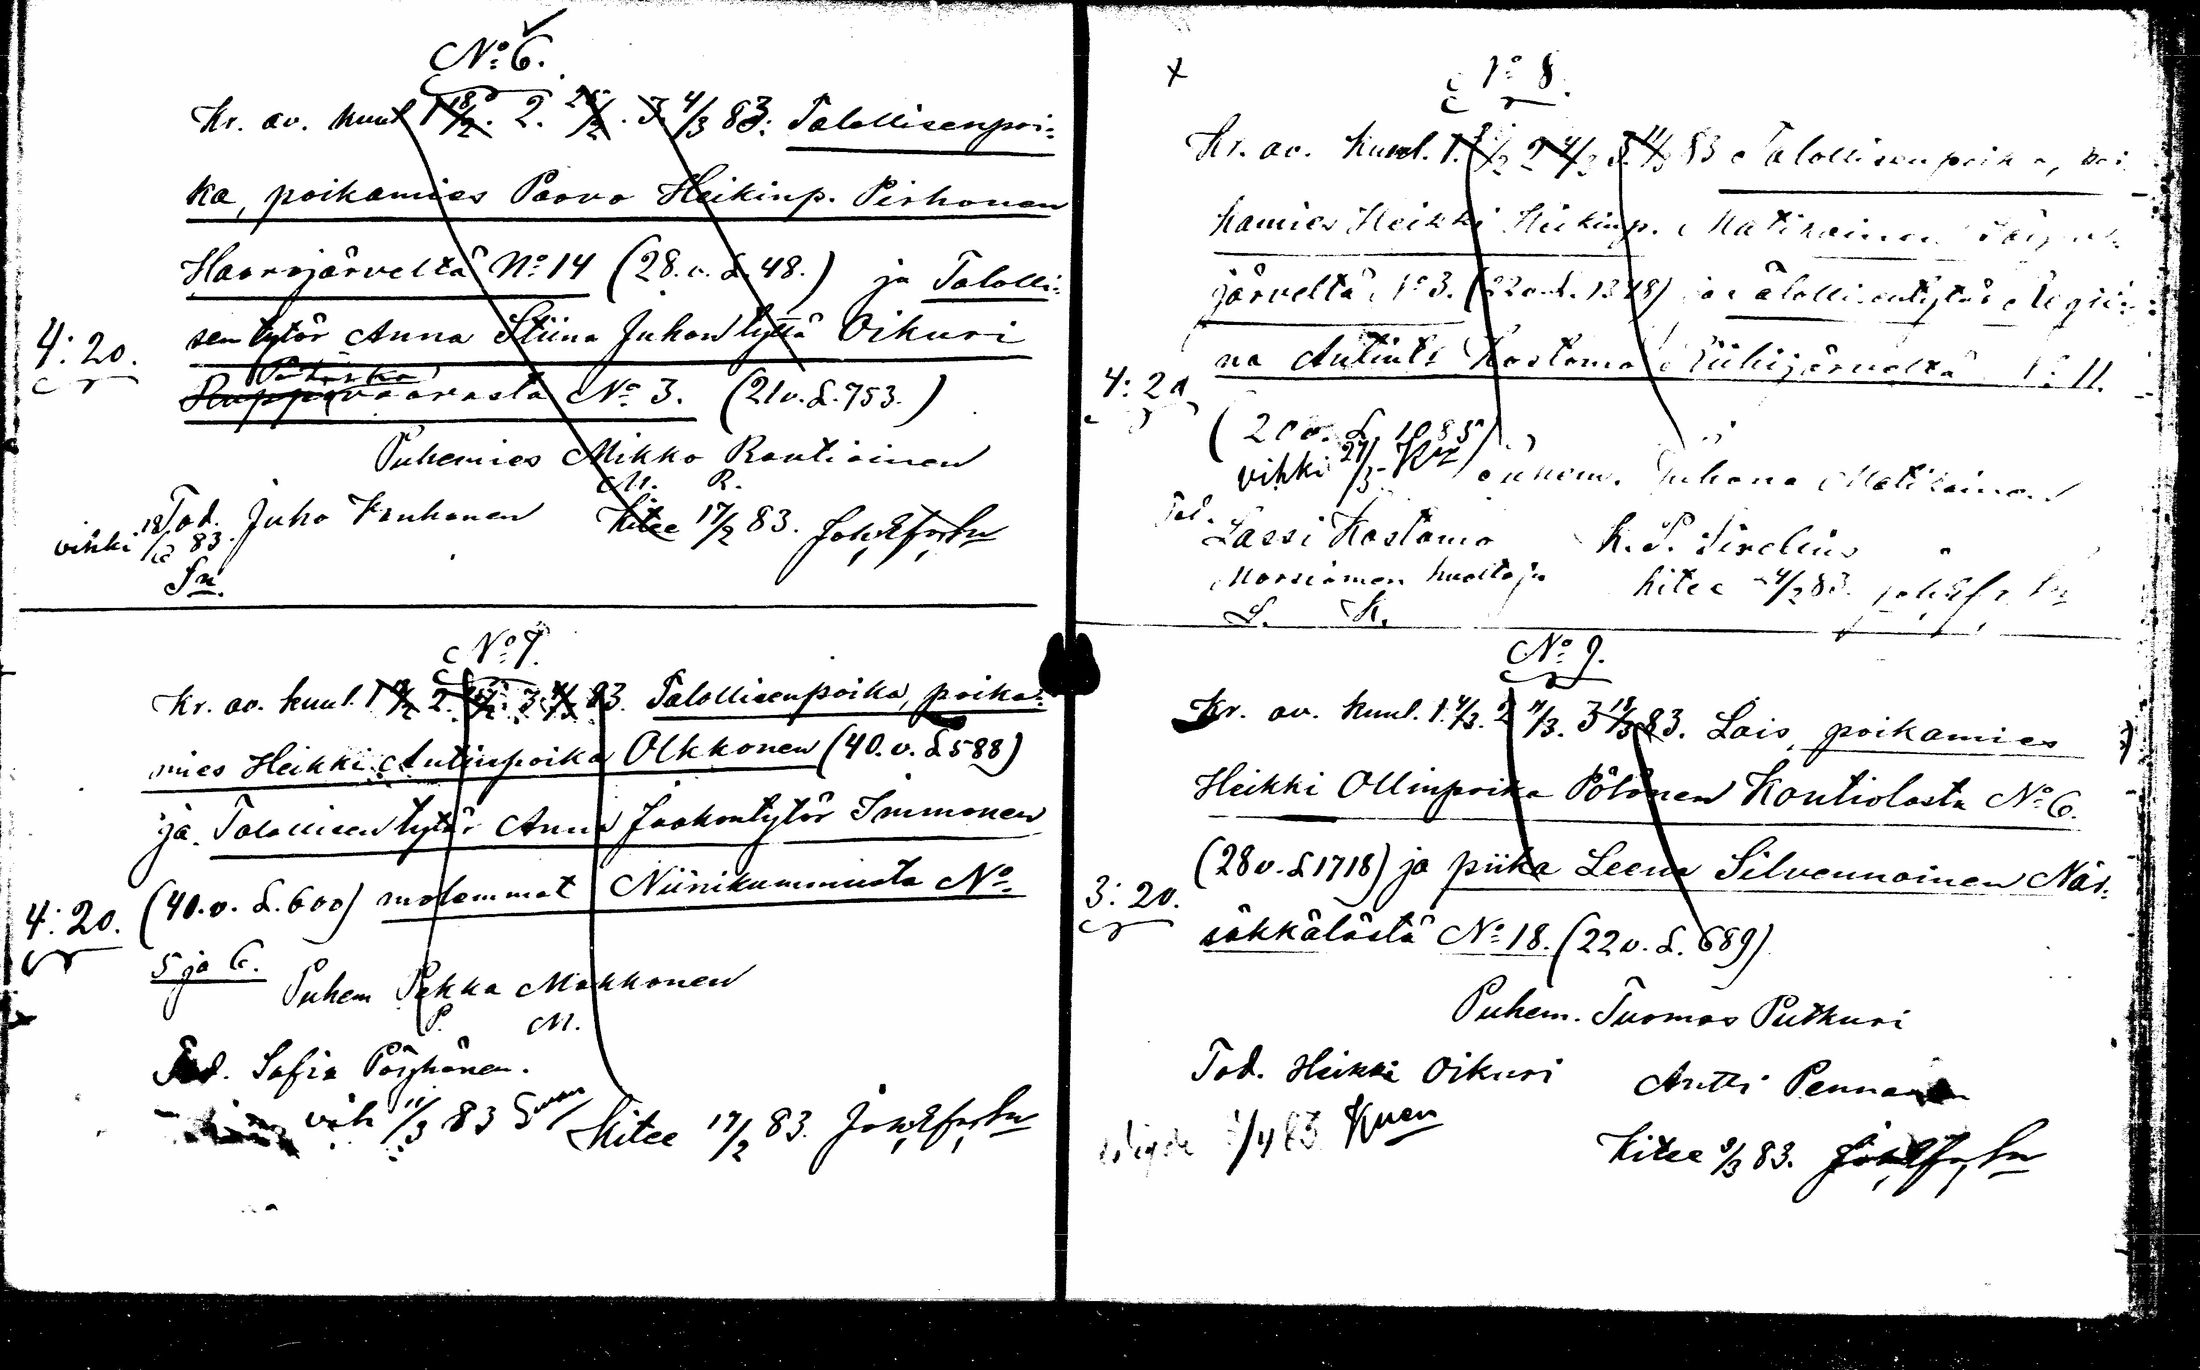 No: 6.
Kr. av. kuul 1 18/2. 2. 25/2. 3. 4/3 83: Talollisenpoi-
ka, poikamies Paavo Heikinp. Pirhonen
Haarajärveltä No: 14 (28. v. L. 48.) ja Talolli-
sen tytär Anna Stiina Juhontyttä Oikuri
4: 20.
vaarasta No 3. (21 v. L. 753.)
Puhemies Mikko Rautiainen
M. R.
Tod. Juho Kauhanen Kitee 17/2 83.
vihki 18/ 83.
No: 7.
Kr. av. kuul. 1 2. 3. 83. Talollisenpoika, poika-
mies Heikki Antinpoika Olkkonen (40. v. L 588)
ja Talollisen tytär Anna Jaakontytär Immonen
4: 20. (40. v. L. 600) molemmat Niinikummusta No
5 ja 6.
Puhem Pekka Makkonen
P. M.
Tod. Sofia Pöyhönen.
vih 11/3 83 Kitee 17/2 83.
x
No 8.
Kr. av. kuul. 1. 2 3. 11/3 83 Talollisenpoika, poi-
kamies Heikki Heikinp. Matikainen
järveltä No 3. (22 v. L. 1348) ja Talollisentytär Regii-
na Antint. Kostamo Riihijärveltä No 11.
4: 20
(20 v. L. 1085)
vihki 27/3 Juhana Matikainen
Tod.
Lassi Kostamo K. P. Sirelius
Morsiamen huoltaja Kitee 83.
L. K.
No: 9.
Kr. av. kuul. 1. 4/3. 2 11/3. 3 18/3 83. Lois, poikamies
Heikki Ollinpoika Pölönen Kontiolasta No: 6.
(28 v. L 1718) ja piika Leena Silvennoinen När-
3: 20.
säkkälästä No: 18. (22 v. L. 689)
Puhem. Tuomas Putkuri
Tod. Heikki Oikuri Antti Pennanen
/4 83 Kitee 83.